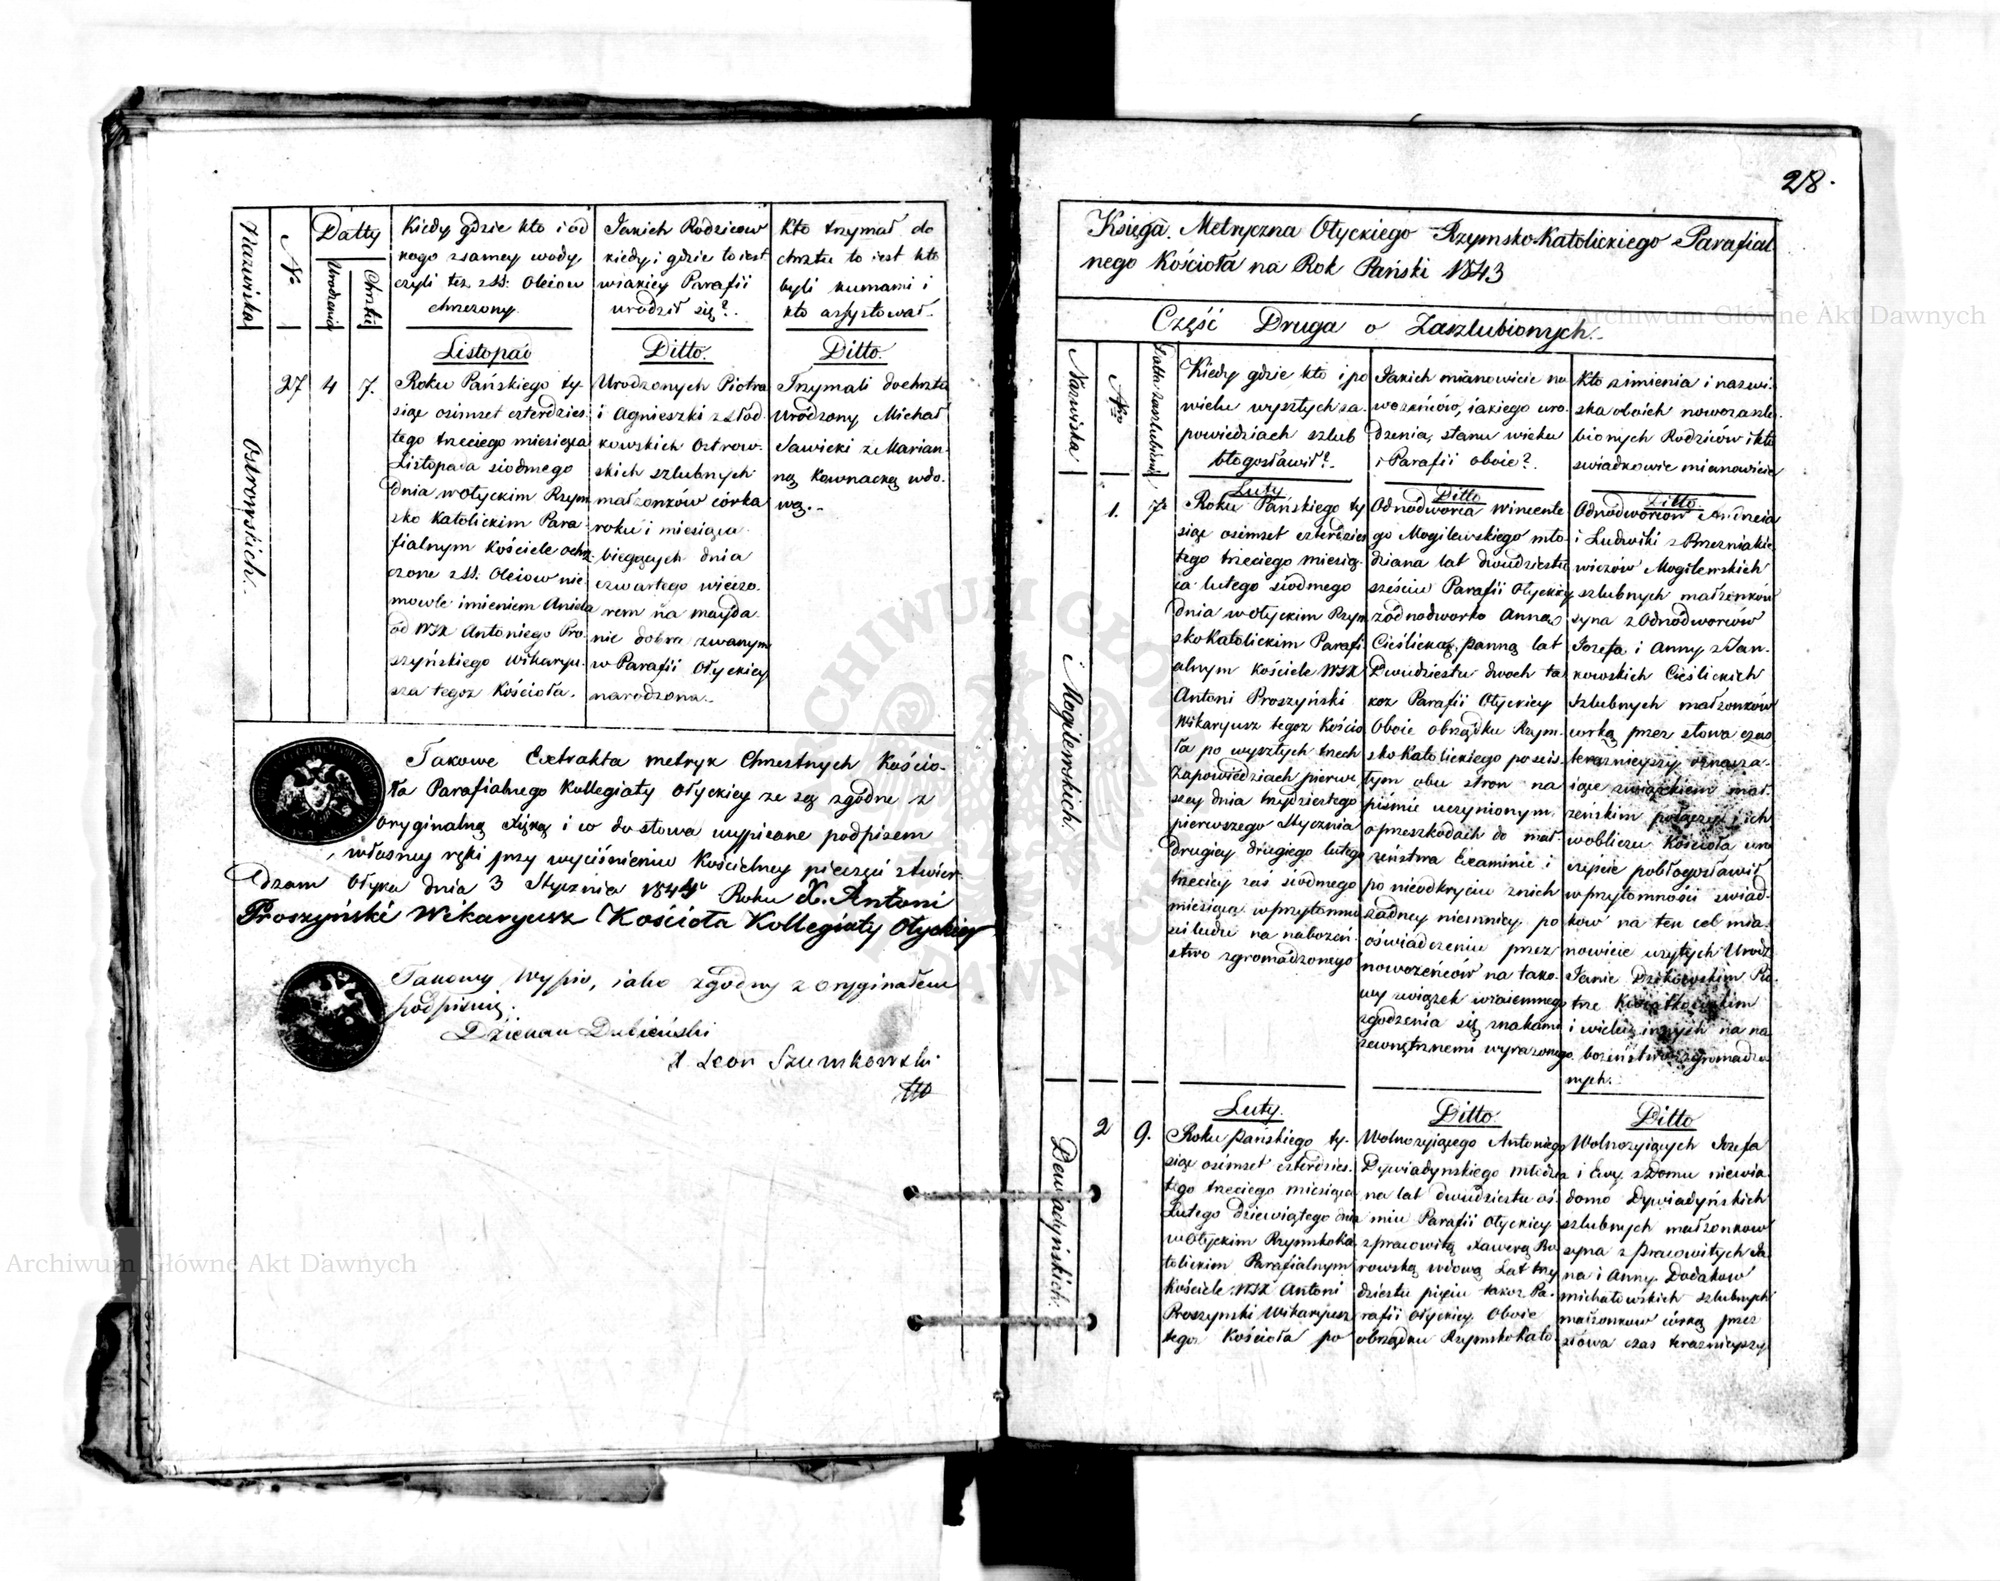 Nazwiska
№
Datty
Urodzenia
Chrztu
Kiedy gdzie kto i od
kogo z samey wody
czyli też z SS: Oleiow
chrzczony
Jakich Rodzicow
kiedy i gdzie to iest
w iakiey Parafii
urodził się?
Kto trzymał do
chrztu to iest kto
byli kumami i
kto assystował.
Ostrowskich.
27
4
7.
Listopad
Roku Pańskiego ty-
siąc osimset czterdzies
tego trzeciego miesiąca
Listopada siodmego
dnia w Ołyckim Rzym
sko Katolickim Para-
fialnym Kościele ochrz-
czone z SS: Oleiow nie-
mowle imieniem Aniela
od WJX Antoniego Pro-
szyńskiego Wikaryu-
sza tegoż Kościoła.
Ditto.
Urodzonych Piotra
i Agnieszki z Słod-
kowskich Ostrow-
skich szlubnych
małżonków córka
roku i miesiąca
bieżących dnia
czwartego wieczo-
rem na mayda-
nie dobra zwanym
w Parafii Ołyckiey
narodzona.
Ditto.
Trzymali do chrztu
Urodzony Michał
Sawicki z Marian-
ną Kownacką wdo-
wą.
Takowe Extrakta metryk Chrzestnych Kościo-
ła Parafialnego Kollegiaty Ołyckiey że są zgodne z
oryginalną Xięgą i co do słowa wypisane podpisem
własney ręki przy wyciśnieniu Kościelney pieczęci stwier-
dzam Ołyka dnia 3 Stycznia 1844 Roku X. Antoni
Proszyński Wikaryusz Kościoła Kollegiaty Ołyckiey
Takowy Wypis, iako zgodny z oryginałem
podpisuię.
Dziekan Dubieński
X. Leon Szumkowski
28.
Księga Metryczna Ołyckiego Rzymsko Katolickiego Parafial
nego Kościoła na Rok Pański 1843
Część Druga o Zaszlubionych.
Nazwiska
Nro
Datta zaszlubienia
Kiedy gdzie kto i po
wielu wyszłych za-
powiedziach szlub
błogosławił?
Jakich mianowicie no
wożeńców, iakiego uro-
dzenia, stanu wieku
i Parafii oboie?
Kto z imienia i nazwi-
ska oboich nowozaszlu-
bionych Rodziców i kto
swiadkowie mianowicie
i Mogilewskich.
1.
7.
Luty
Roku Pańskiego ty
siąc osimset czterdzies
tego trzeciego miesią-
ca lutego siodmego
dnia w Ołyckim Rzym
sko Katolickim Parafi
alnym Kościele WJX
Antoni Proszyński
Wikaryusz tegoż Kościo
ła po wyszłych trzech
zapowiedziach pierw-
szey dnia trzydziestego
pierwszego Stycznia
drugiey drugiego lutego
trzeciey zaś siodmego
miesiąca w przytomno
ści ludu na nabożeń-
stwo zgromadzonego
Ditto
Odnodworca Wincente
go Mogilewskiego mło
dziana lat dwudziestu
sześciu Parafii Ołyckiey
z Odnodworką Anną
Cieślicką panną lat
Dwudziestu dwoch ta
koż Parafii Ołyckiey
Oboie obrządku Rzym-
sko Katolickiego po ścis-
łym obu stron na
piśmie uczynionym
o przeszkodach do mał-
żeństwa Examinie i
po nieodkryciu z nich
żadney niemniey po
oświadczeniu przez
nowożeńców na tako-
wy związek wzaiemnego
zgodzenia się znakami
zewnętrznemi wyrażonego
Ditto
Odnodworców Andreia
i Ludwiki z Brezniakie
wiczów Mogilewskich
szlubnych małżonków
syna z Odnodworców
Jozefa i Anny z Jan-
kowskich Cieślickich
szlubnych małżonków
corką przez słowa czas
teraznieyszy oznacza-
iące związkiem mał-
żeńskim połączył i ich
w obliczu Kościoła uro
czyście pobłogosławił
w przytomności swiad-
kow na ten cel mia-
nowicie użytych Urodz
Janie Dzikowskim Pio-
trze Kwiatkowskim
i wielu innych na na
bożeństwo zgromadzo-
nych.
Dewiadyńskich.
2
9.
Luty.
Roku pańskiego ty-
siąc osimset czterdzies-
tego trzeciego miesiąca
Lutego dziewiątego dnia
w Ołyckim Rzymsko Ka
tolickim Parafialnym
Kościele WJX Antoni
Proszynski Wikaryusz
tegoż Kościoła po
Ditto.
Wolnożyjącego Antoniego
Dywiadynskiego młodzia
na lat dwudziestu oś-
miu Parafii Ołyckiey
z pracowitą Xawerą Bo
rowską wdową Lat trzy
dziestu pięciu takoż Pa-
rafii Ołyckiey. Oboie
obrządku Rzymsko Kato-
Ditto
Wolnożyiących Jozefa
i Ewy z Domu niewia-
domo Dywiadyńskich
szlubnych małżonkow
syna z Pracowitych Ja-
na i Anny Dodakow
michałowskich szlubnych
małżonkow córką przez
słowa czas teraznieyszy
Archiwum Główne Akt Dawnych
Archiwum Główne Akt Dawnych